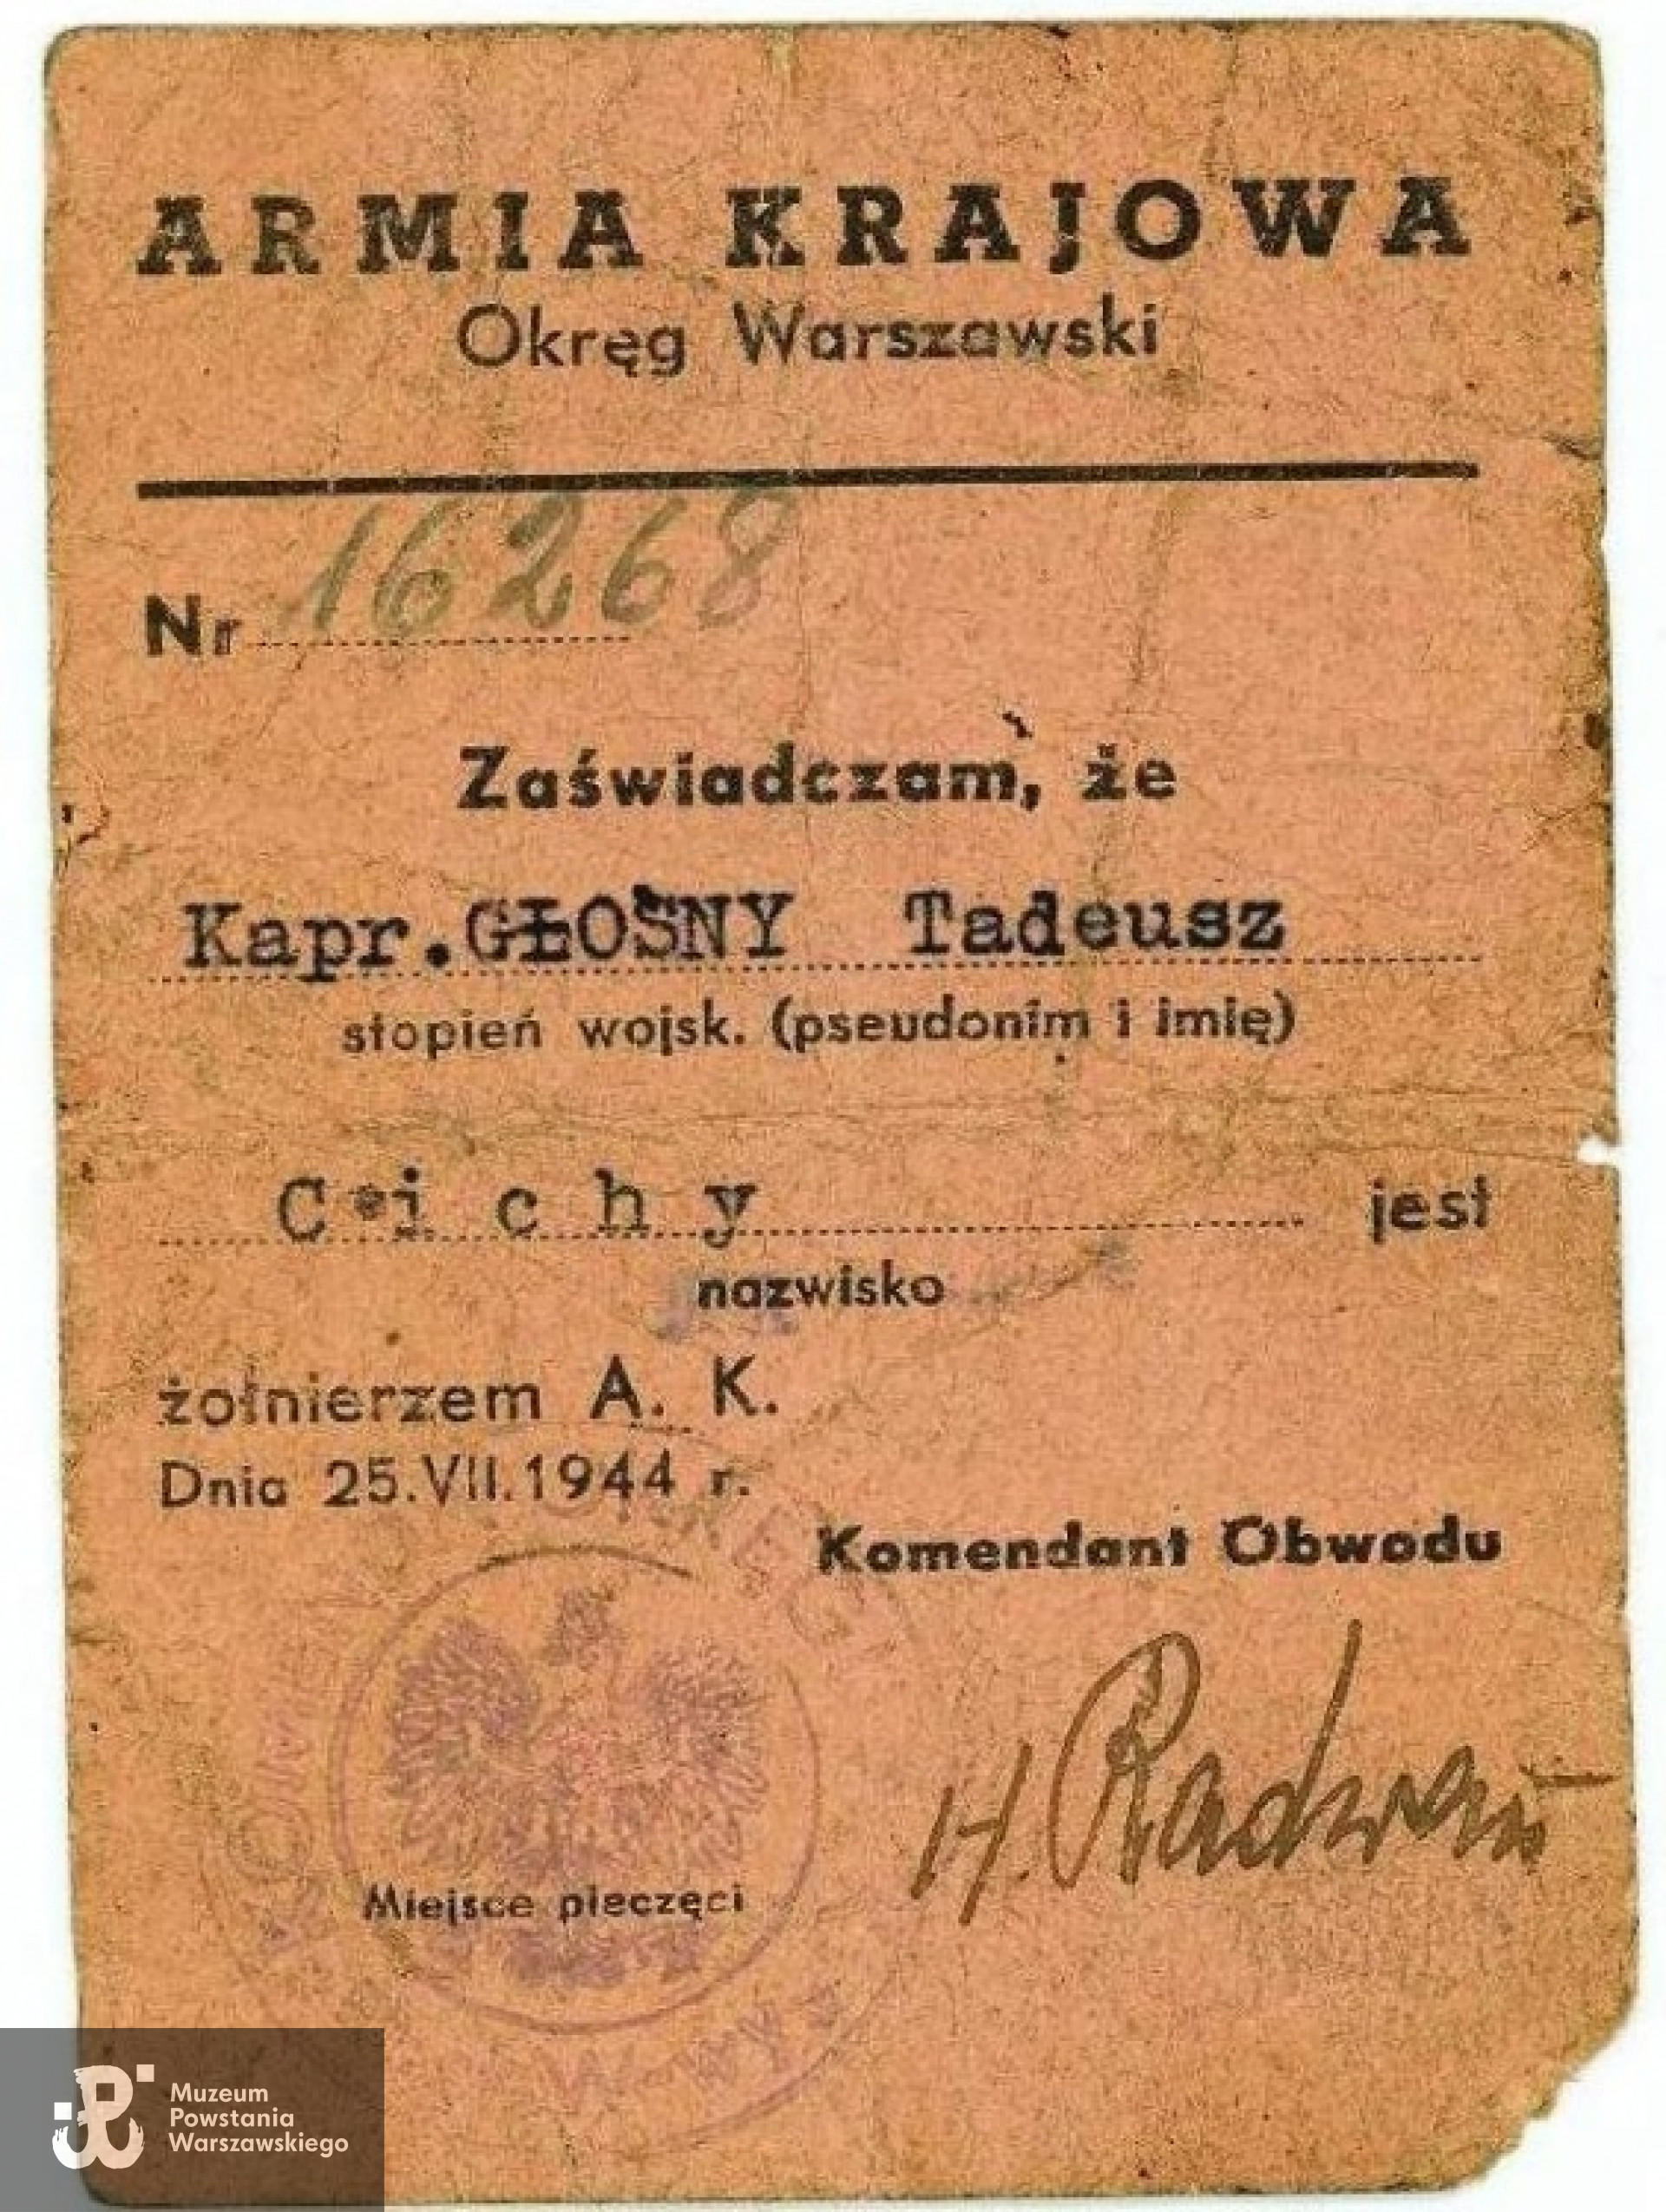 ARMIA KRAJOWA
Okręg Warszawski
Nr 16268
Zaświadczam, że
Kapr. GŁOŚNY Tadeusz
stopień wojsk. (pseudonim i imię)
Cichy jest
nazwisko
żołnierzem A. K.
Dnia 25.VII.1944 r.
Komendant Obwodu
H. Radwan
Miejsce pieczęci
Muzeum
Powstania
Warszawskiego